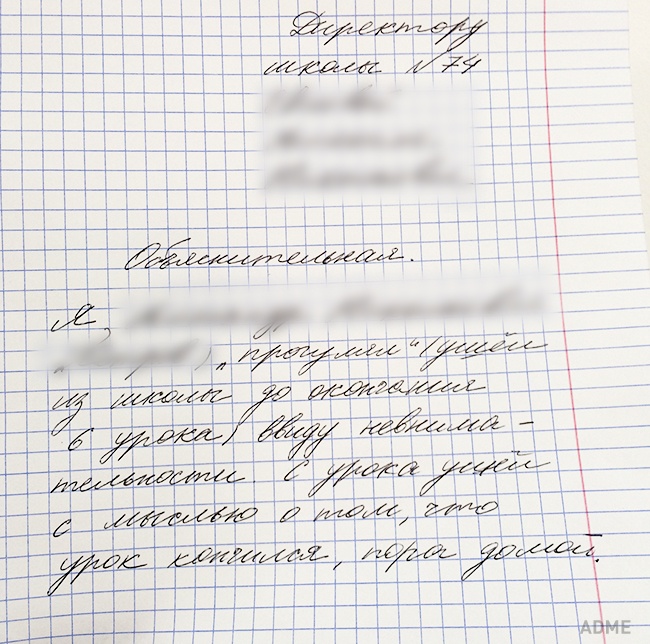 Директору
школы №74
Объяснительная.
Я,
„прогулял“ (ушёл
из школы до окончания
6 урока) ввиду невнима-
тельности. С урока ушёл
с мыслью о том, что
урок кончился, пора домой.
ADME